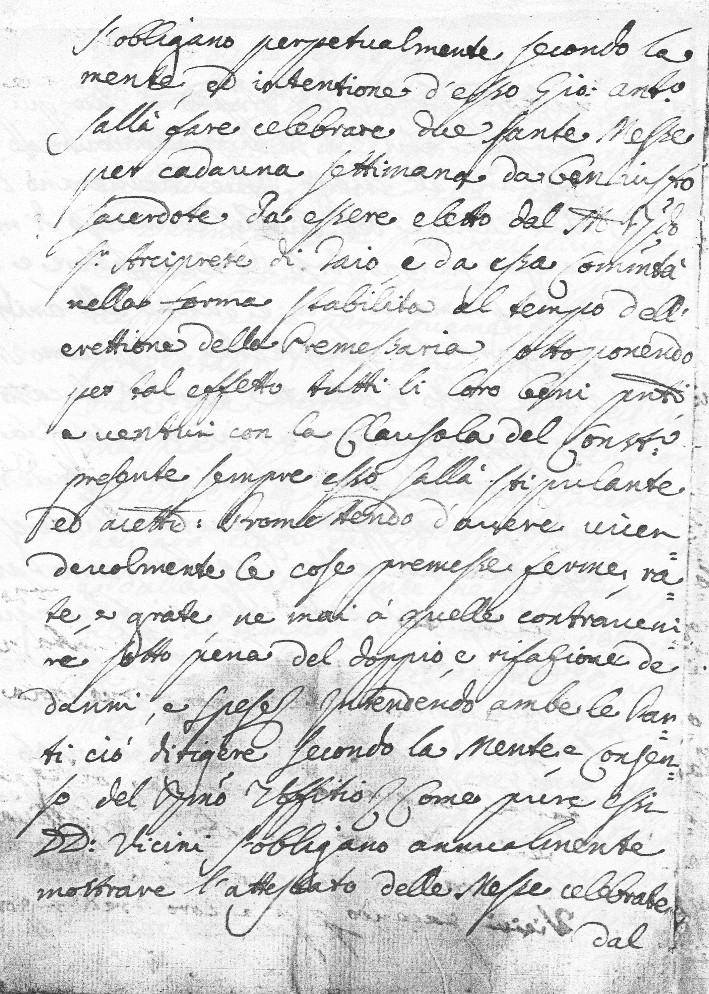 s'obligano perpetualmente secondo la
mente, ed intentione d'esso Gio: Anto:
Sallà fare celebrare due sante Messe
per cadauna settimana da ben visto
sacerdote da essere eletto dal M: Rdo
Sr Arciprete di Taio e da essa Comtà
nella forma stabilita al tempo dell'
erettione della Premessaria sottoponendo
per tal effetto tutti li loro beni pnti
e venturi con la Clausola del Constto
presente sempre esso Sallà stipulante
ed acettte: Promettendo d'avere vicen=
devolmente le cose premesse ferme, ra=
te, e grate, ne mai à quelle contraveni=
re sotto pena del doppio, e rifazione de
danni, e spese, Intendendo ambe le Par=
ti ciò dirigere secondo la Mente e Consen=
so del Offitio Come pure essi
DD: Vicini s'obligano annualmente
mostrare l'attestato delle Messe celebrate
dal